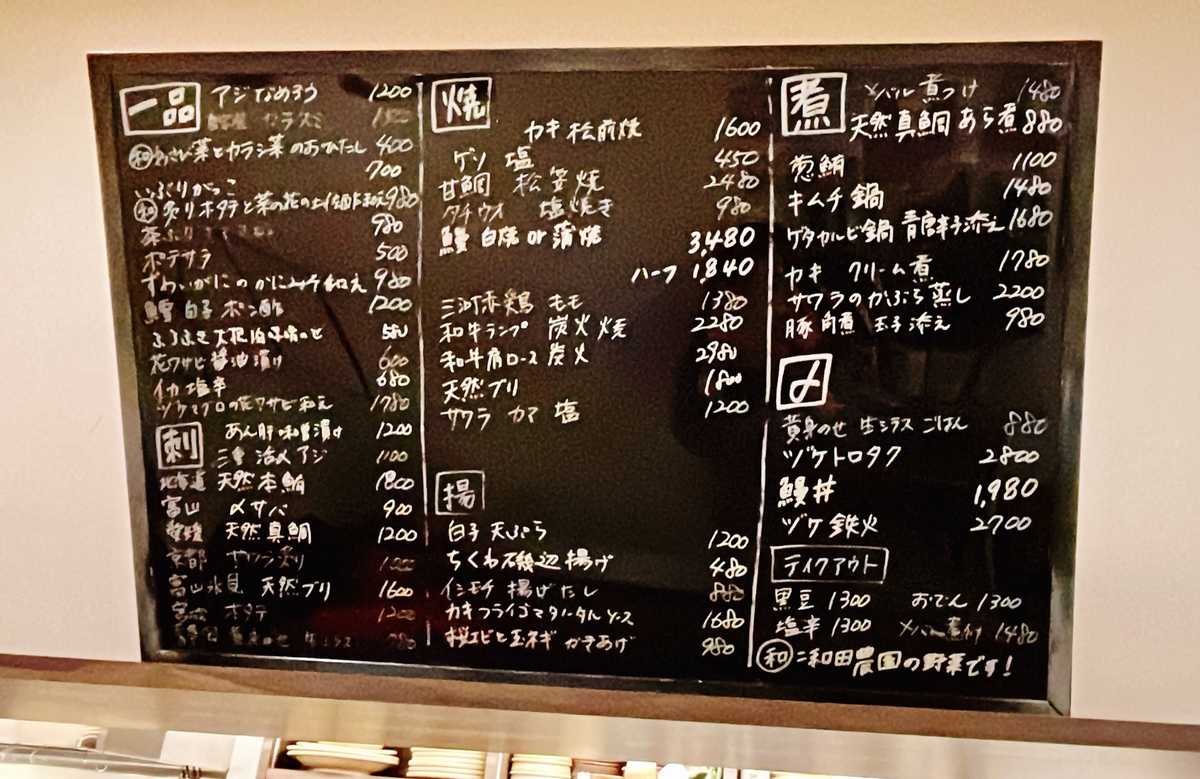 一品 アジなめろう 1200
カラスミ
㊙和 わさび菜とカラシ菜のおひたし 400
いぶりがっこ 700
㊙和 炙りホタテと菜の花の 和え 980
980
ポテサラ 500
ずわいがにのかにみそ和え 980
鱈白子ポン酢 1200
ふろふき大根 味噌のせ 580
花ワサビ醤油漬け 600
イカ塩辛 680
ヅケマグロの花ワサビ和え 1780
あん肝味噌漬け 1200
刺 三重 活〆アジ 1100
北海道 天然本鮪 1800
富山 〆サバ 900
愛媛 天然真鯛 1200
京都 サワラ炙り
富山氷見 天然ブリ 1600
ホタテ 1200
980
焼
カキ松前焼 1600
ゲソ 塩 450
甘鯛 松笠焼 2480
タチウオ 塩焼き 980
鰻 白焼 or 蒲焼 3,480
ハーフ 1,840
三河赤鶏 モモ 1380
和牛ランプ 炭火焼 2280
和牛肩ロース 炭火 2980
天然ブリ 1800
サワラ カマ 塩 1200
揚
白子 天ぷら 1200
ちくわ磯辺揚げ 480
イシモチ 揚げだし 880
カキフライゴマタルタルソース 1680
桜エビと玉ネギ かきあげ 980
煮 メバル煮つけ 1480
天然真鯛 あら煮 880
葱鮪 1100
キムチ鍋 1480
ゲタカルビ鍋 青唐辛子添え 1680
カキ クリーム煮 1780
サワラのかぶら蒸し 2200
豚角煮 玉子添え 980
〆
黄身のせ 生シラス ごはん 880
ヅケトロタク 2800
鰻丼 1,980
ヅケ鉄火 2700
テイクアウト
黒豆 1300 おでん 1300
塩辛 1300 メバル煮付 1480
㊙和 =和田農園の野菜です!